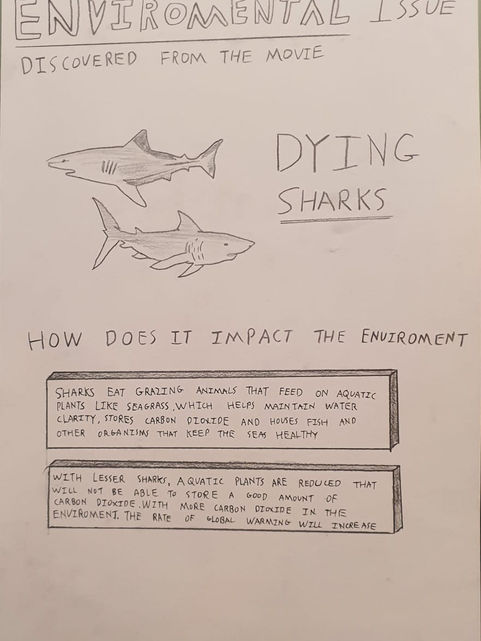 ENVIROMENTAL ISSUE
DISCOVERED FROM THE MOVIE
DYING
SHARKS
HOW DOES IT IMPACT THE ENVIROMENT
SHARKS EAT GRAZING ANIMALS THAT FEED ON AQUATIC
PLANTS LIKE SEAGRASS, WHICH HELPS MAINTAIN WATER
CLARITY, STORES CARBON DIOXIDE AND HOUSES FISH AND
OTHER ORGANISMS THAT KEEP THE SEAS HEALTHY
WITH LESSER SHARKS, AQUATIC PLANTS ARE REDUCED THAT
WILL NOT BE ABLE TO STORE A GOOD AMOUNT OF
CARBON DIOXIDE. WITH MORE CARBON DIOXIDE IN THE
ENVIROMENT. THE RATE OF GLOBAL WARMING WILL INCREASE